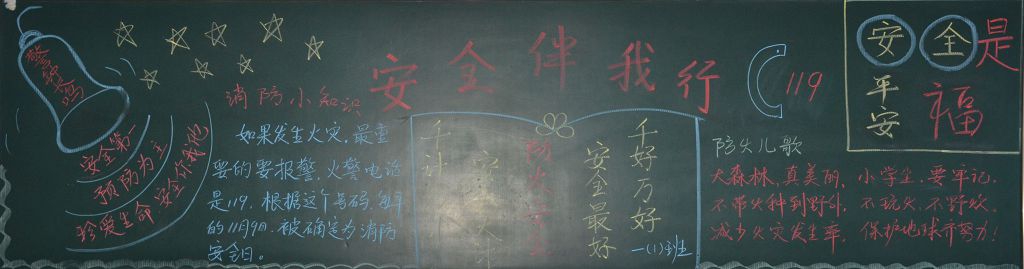 警钟长鸣
安全第一
预防为主
珍爱生命 安全伴我
安全伴我行
消防小知识
如果发生火灾，最重
要的要报警，火警电话
是119，根据这个号码，每年
的11月9日，被确定为消防
安全日。
千计
安全
防火安全
千好万好
安全最好
一(1)班
119
安全是
平安
福
防火儿歌
大森林，真美丽，小学生，要牢记，
不带火种到野外，不玩火，不野炊，
减少火灾发生率，保护地球齐努力！